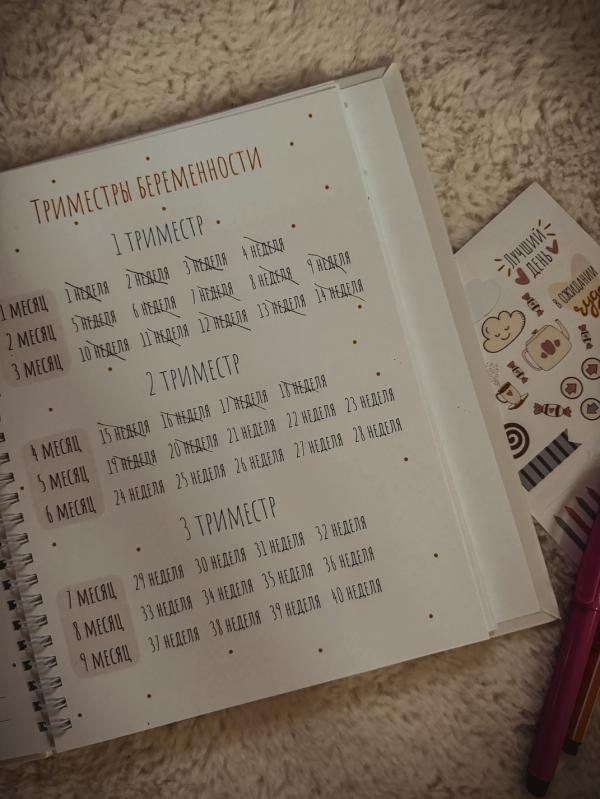 Триместры беременности
1 триместр
1 месяц 1 неделя 2 неделя 3 неделя 4 неделя
2 месяц 5 неделя 6 неделя 7 неделя 8 неделя 9 неделя
3 месяц 10 неделя 11 неделя 12 неделя 13 неделя 14 неделя
2 триместр
4 месяц 15 неделя 16 неделя 17 неделя 18 неделя
5 месяц 19 неделя 20 неделя 21 неделя 22 неделя 23 неделя
6 месяц 24 неделя 25 неделя 26 неделя 27 неделя 28 неделя
3 триместр
7 месяц 29 неделя 30 неделя 31 неделя 32 неделя
8 месяц 33 неделя 34 неделя 35 неделя 36 неделя
9 месяц 37 неделя 38 неделя 39 неделя 40 неделя
ЛУЧШИЙ
ДЕНЬ
В ОЖИДАНИИ